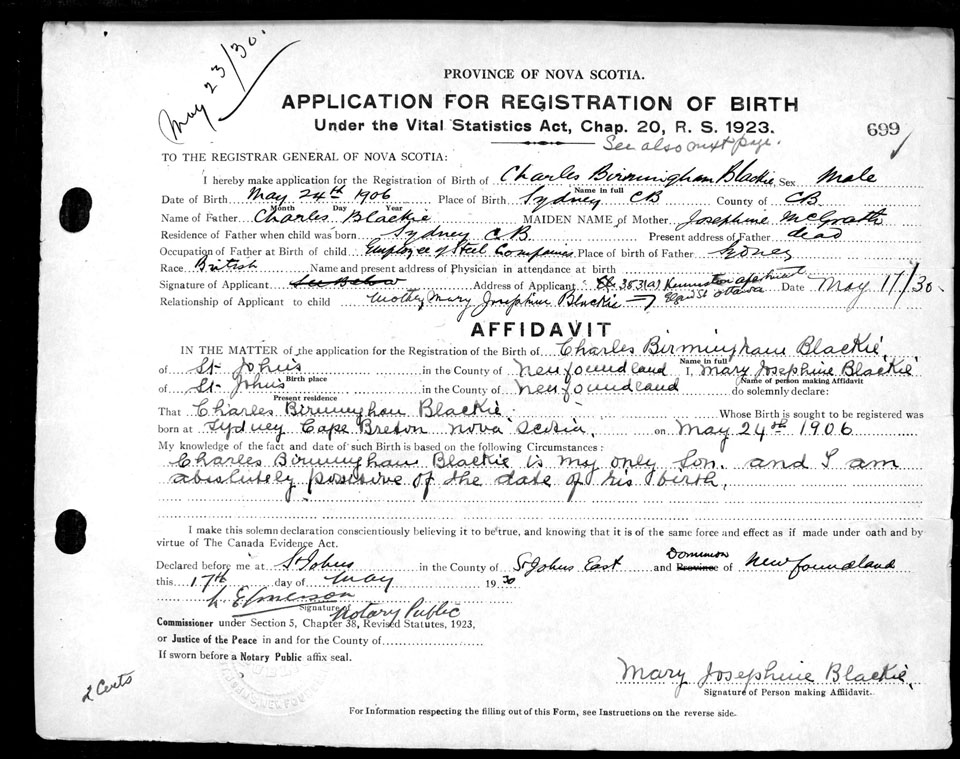 May 23/30.
PROVINCE OF NOVA SCOTIA.
APPLICATION FOR REGISTRATION OF BIRTH
Under the Vital Statistics Act, Chap. 20, R. S. 1923.
699
See also next page.
TO THE REGISTRAR GENERAL OF NOVA SCOTIA:
I hereby make application for the Registration of Birth of Charles Birmingham Blackie Sex Male
Name in full
Date of Birth May 24th 1906 Place of Birth Sydney CB County of CB
Month Day Year
Name of Father Charles Blackie MAIDEN NAME of Mother Josephine McGrath
Residence of Father when child was born Sydney C.B. Present address of Father dead
Occupation of Father at Birth of child Employee of Steel Companies Place of birth of Father
Race British Name and present address of Physician in attendance at birth
Signature of Applicant See Below Address of Applicant Ottawa Date May 17/30
Relationship of Applicant to child Mother Mary Josephine Blackie
AFFIDAVIT
IN THE MATTER of the application for the Registration of the Birth of Charles Birmingham Blackie
Name in full
of St Johns in the County of Newfoundland I, Mary Josephine Blackie
Birth place Name of person making Affidavit
of St Johns in the County of Newfoundland do solemnly declare:
Present residence
That Charles Birmingham Blackie Whose Birth is sought to be registered was
born at Sydney Cape Breton Nova Scotia. on May 24th 1906
My knowledge of the fact and date of such Birth is based on the following Circumstances:
Charles Birmingham Blackie is my only son. and I am
absolutely positive of the date of his birth.
I make this solemn declaration conscientiously believing it to be true, and knowing that it is of the same force and effect as if made under oath and by
virtue of The Canada Evidence Act.
Dominion
Declared before me at St Johns in the County of St Johns East and Province of Newfoundland
this 17th day of May 1930
Emerson
Signature of Notary Public
Commissioner under Section 5, Chapter 38, Revised Statutes, 1923,
or Justice of the Peace in and for the County of
If sworn before a Notary Public affix seal.
2 Certs
Mary Josephine Blackie
Signature of Person making Affidavit.
For Information respecting the filling out of this Form, see Instructions on the reverse side.